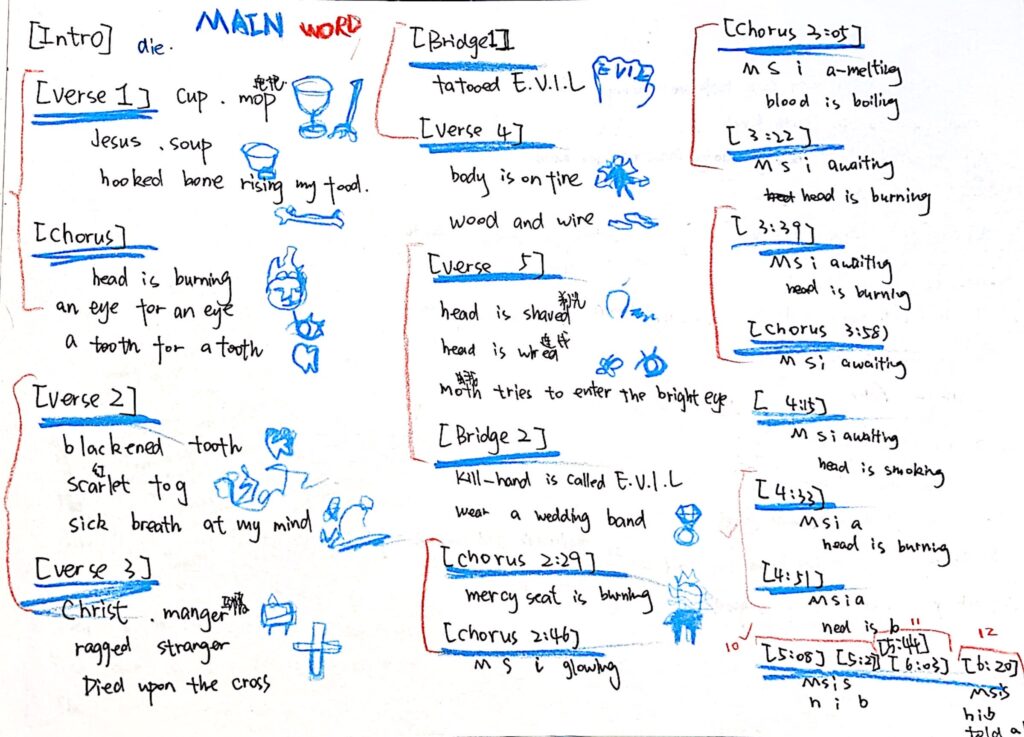 MAIN WORD
[Intro] die.
[Verse 1] cup . mop
Jesus . soup
hooked bone rising my food.
[Chorus]
head is burning
an eye for an eye
a tooth for a tooth
[Verse 2]
blackened tooth
scarlet fog
红
sick breath at my mind
[Verse 3]
Christ . manger
ragged stranger
Died upon the cross
[Bridge 1]
tatooed E.V.I.L
EVIL
[Verse 4]
body is on fire
wood and wine
[Verse 5]
head is shaved
head is wired
moth tries to enter the bright eye
[Bridge 2]
Kill-hand is called E.V.I.L
wear a wedding band
[Chorus 2:29]
mercy seat is burning
[Chorus 2:46]
M S i glowing
[Chorus 3:05]
M S i a-melting
blood is boiling
[3:22]
M S i awaiting
head is burning
[3:39]
M S i awaiting
head is burning
[Chorus 3:58)
M S i awaiting
[4:15]
M S i awaiting
head is smoking
[4:33]
M S i a
head is burning
[4:51]
M S i a
hed is b
10 11 12
[5:08] [5:27] [5:44] [6:03] [6:20]
M S i s
h i b
M S i s
h i b
told a